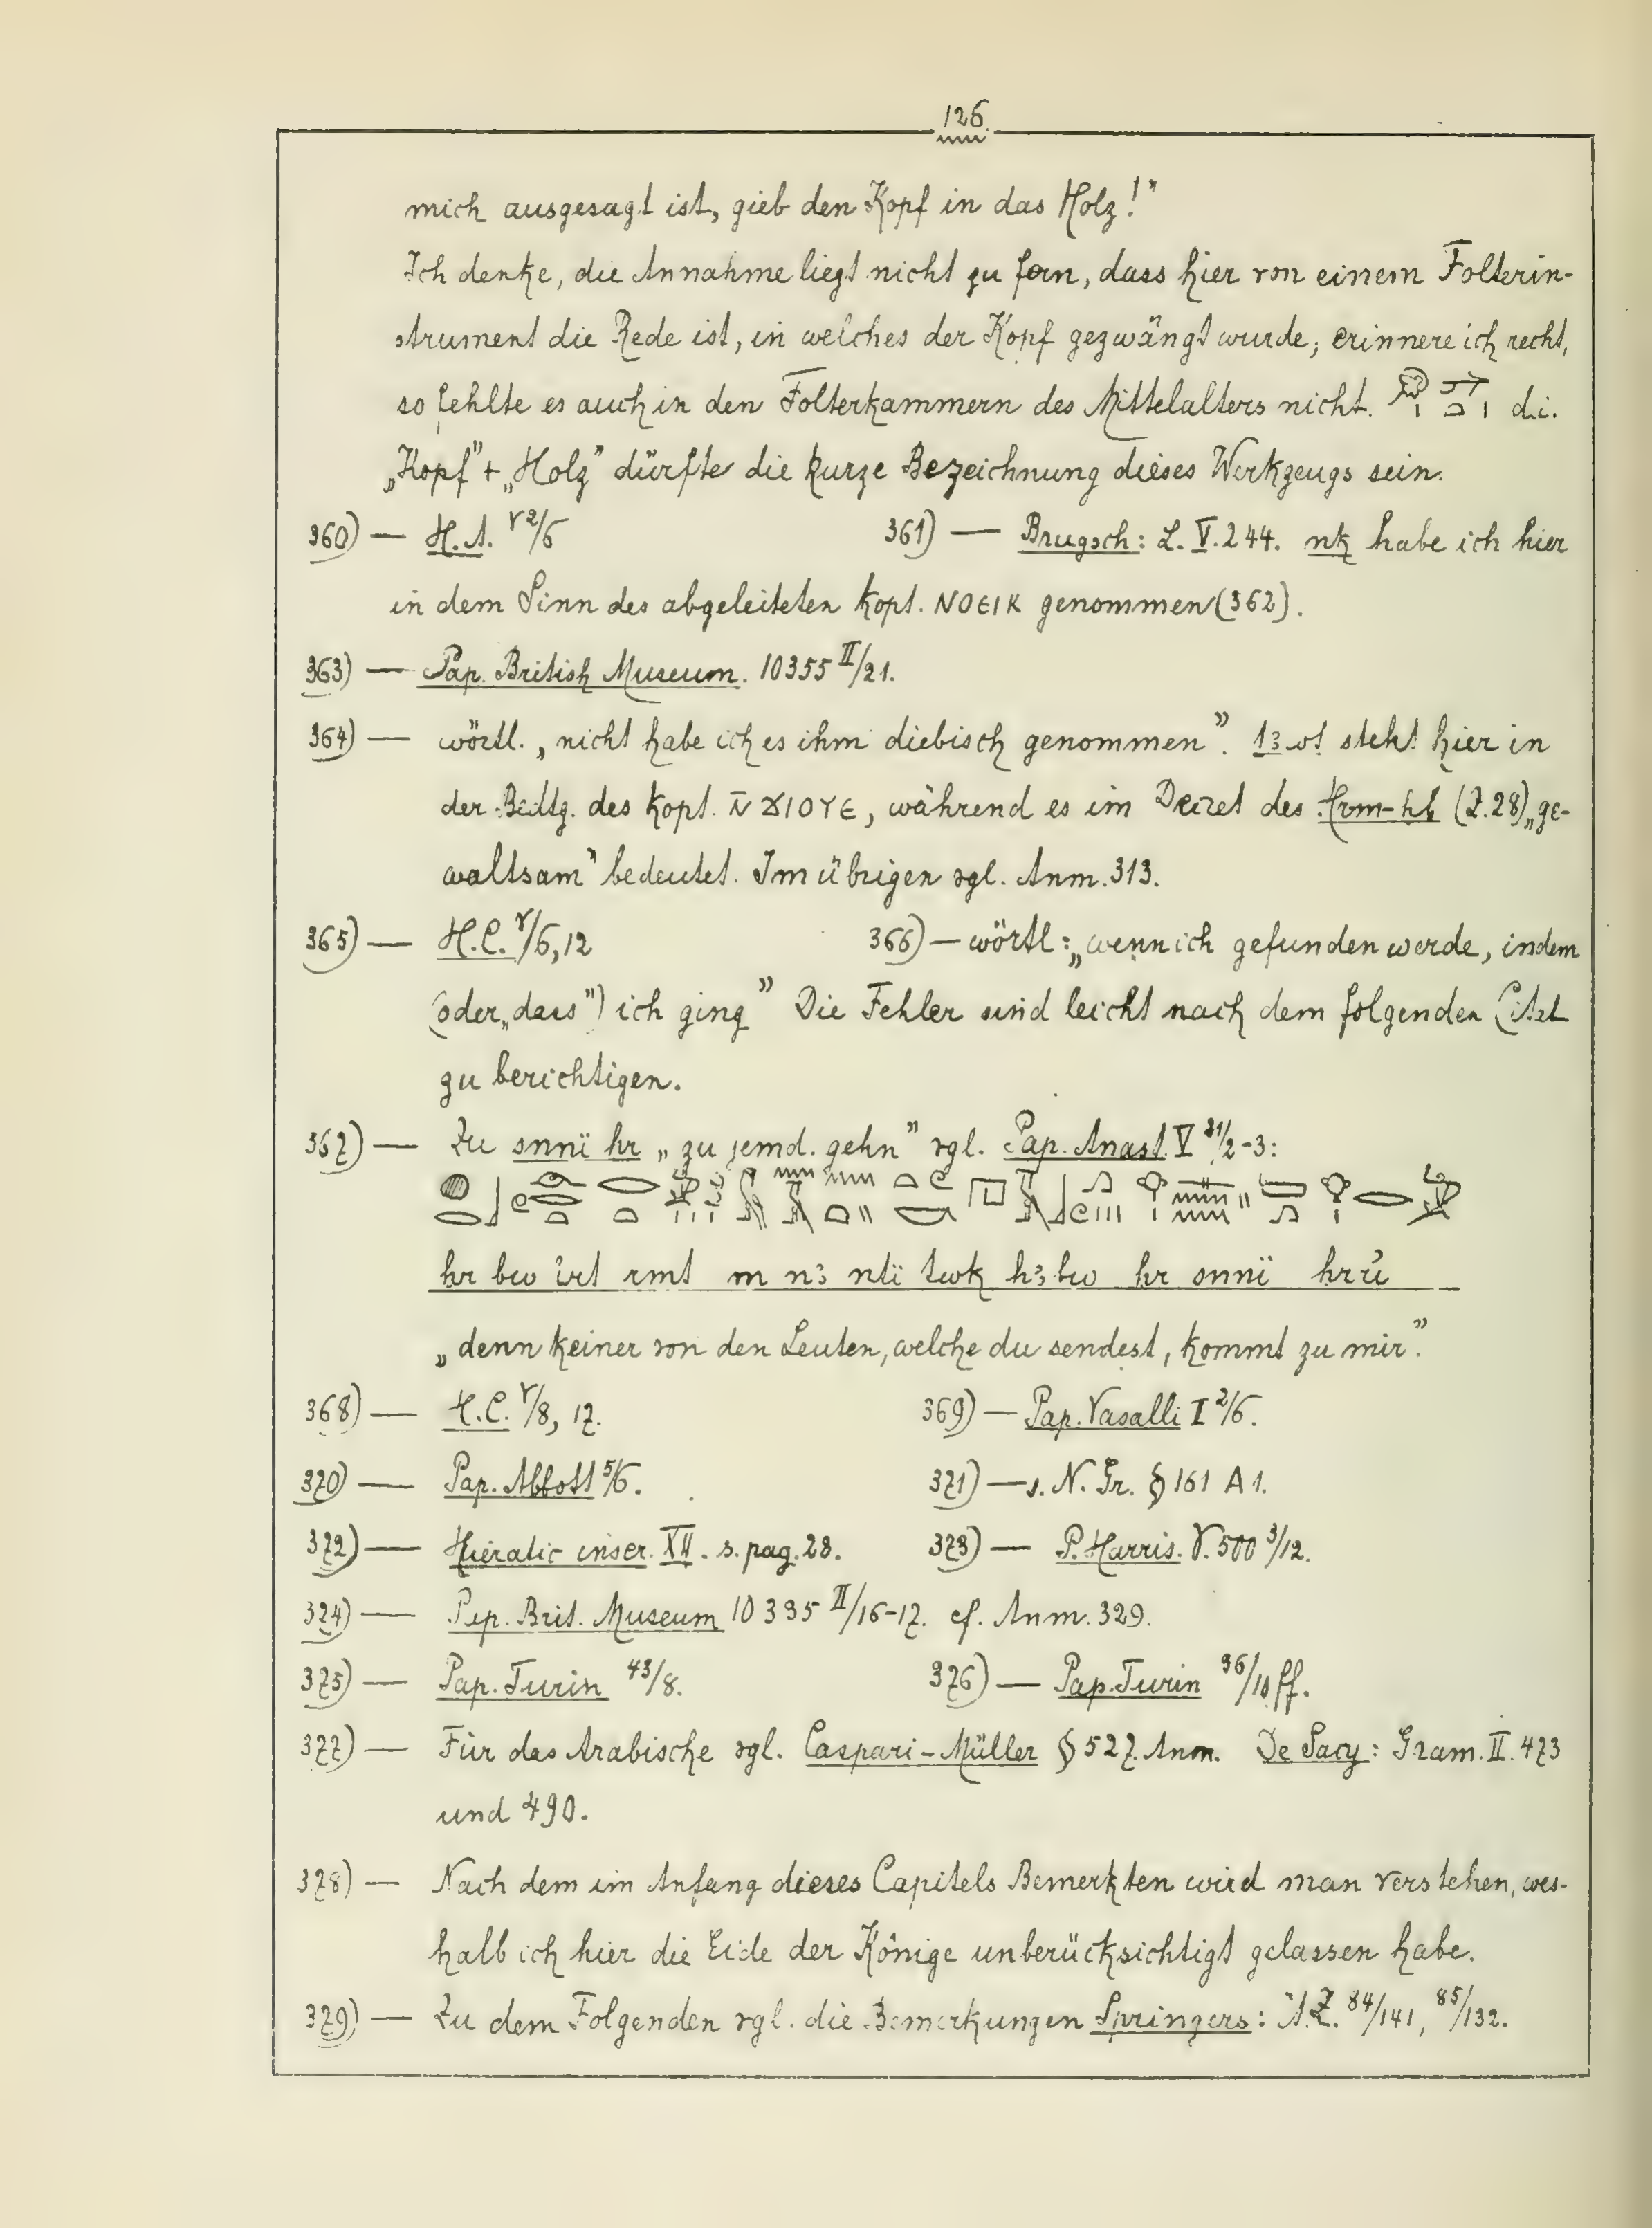 126.
mich ausgesagt ist, gieb den Kopf in das Holz!"
Ich denke, die Annahme liegt nicht zu fern, dass hier von einem Folterin-
strument die Rede ist, in welches der Kopf gezwängt wurde; erinnere ich recht,
so fehlte es auch in den Folterkammern des Mittelalters nicht. d.i.
„Kopf" + „Holz" dürfte die kurze Bezeichnung dieses Werkzeugs sein.
360) — H.A. r 2/6
361) — Brugsch: L. V. 244. nk habe ich hier
in dem Sinn des abgeleiteten kopt. ⲚⲞⲈⲒⲔ genommen (362).
363) — Pap. British Museum. 10355 II/21.
364) — wörtl. „nicht habe ich es ihm diebisch genommen". steht hier in
der Bedtg. des kopt. Ⲛ̄ϪⲒⲞⲨⲈ, während es im Decret des Hrm-hb (Z.28) „ge-
waltsam" bedeutet. Im übrigen vgl. Anm. 313.
365) — H.C. r/6, 12
366) — wörtl: „wenn ich gefunden werde, indem
(oder „dass") ich ging" Die Fehler sind leicht nach dem folgenden Citat
zu berichtigen.
367) — Zu snnï hr „zu jemd. gehn" vgl. Pap. Anast. V 21/2-3:
hr bw irt rmt m n3 ntï twk h3bw hr snnï hrï
„denn keiner von den Leuten, welche du sendest, kommt zu mir."
368) — H.C. r/8, 17.
369) — Pap. Vasalli I 2/6.
370) — Pap. Abbott 5/6.
371) — s. N. Gr. § 161 A 1.
372) — Hieratic inscr. XII. s. pag. 28.
373) — P. Harris. V. 500 3/12.
374) — Pap. Brit. Museum 10335 II/16-17. cf. Anm. 329.
375) — Pap. Turin 43/8.
376) — Pap. Turin 36/10 ff.
377) — Für das Arabische vgl. Caspari-Müller § 527. Anm. De Sacy: Gram. II. 473
und 490.
378) — Nach dem im Anfang dieses Capitels Bemerkten wird man verstehen, wes-
halb ich hier die Eide der Könige unberücksichtigt gelassen habe.
379) — Zu dem Folgenden vgl. die Bemerkungen Springers: Ä.Z. 84/141, 85/132.